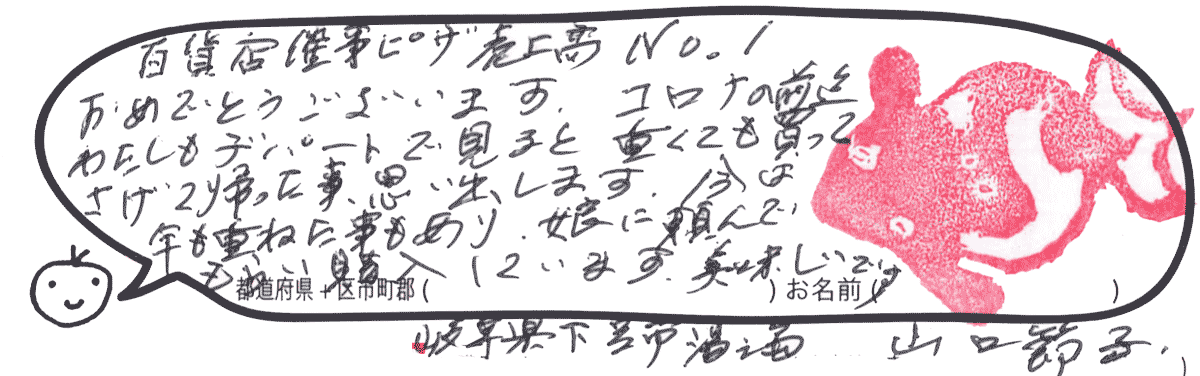 百貨店催事ピザ売上高 No.1
おめでとうございます。コロナの前迄
わたしもデパートで見ると重くても買って
さげて帰った事、思い出します。今は
年も重ねた事もあり、娘に頼んで
もらい購入しています。美味しいです
都道府県+区市町郡( )お名前( )
岐阜県下呂市湯之島 山口節子.